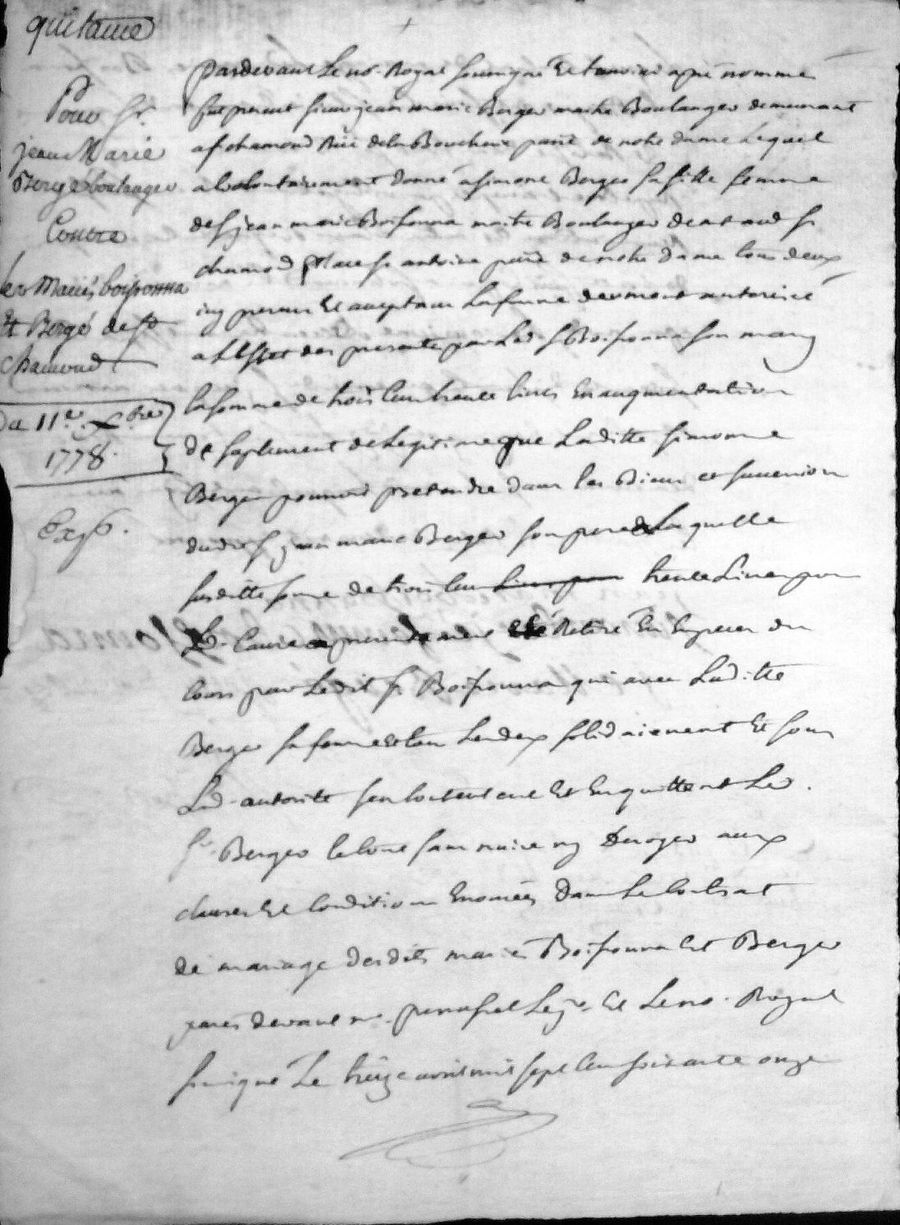 quittance
Pour Sr.
jean Marie
Bergé boulanger
Contre
les Mariés boissonna
Et Bergé de St
Chamond
Du 11e. Xbre
1778.
Exp.
pardevant Le no. Royal soussigné Et temoins apré nommé
fut présent sieur jean marie Berger maitre Boulanger demeurant
a st chamond Rüe de la Boucherie parsse de notre dame Lequel
a volontairement donné a simone Berger sa fille femme
de sr jean marie Boissonna maitre Boulanger de st
chamond place st antoine parsse de notre dame tous deux
icy presens Et acceptans La femme deument autorisée
a L'effet des presentes par Led. sr Boissonna son mary
la somme de trois cens trente livres En augmentation
de suplement de Legitime que Laditte simonne
Berger pouroit pretendre dans les Biens et succession
dudit sr jean marie Berger son pere Laquelle
susditte some de trois cens trente Livres pour
La cause a été Retiré En Especes du
cours par Ledit sr Boissonna qui avec Laditte
Berger sa femme Et tous Les deux solidairement Et sous
Lad. autorité s'en contentent Et En quittent Led.
Sr. Berger le tout sans nuire ny Deroger aux
clauses Et Conditions Enoncées dans Le Contrat
de mariage desdits mariés Boissonna Et Berger
passé devant me. Et Le no. Royal
soussigné Le treize avril mil sept cens soixante onze